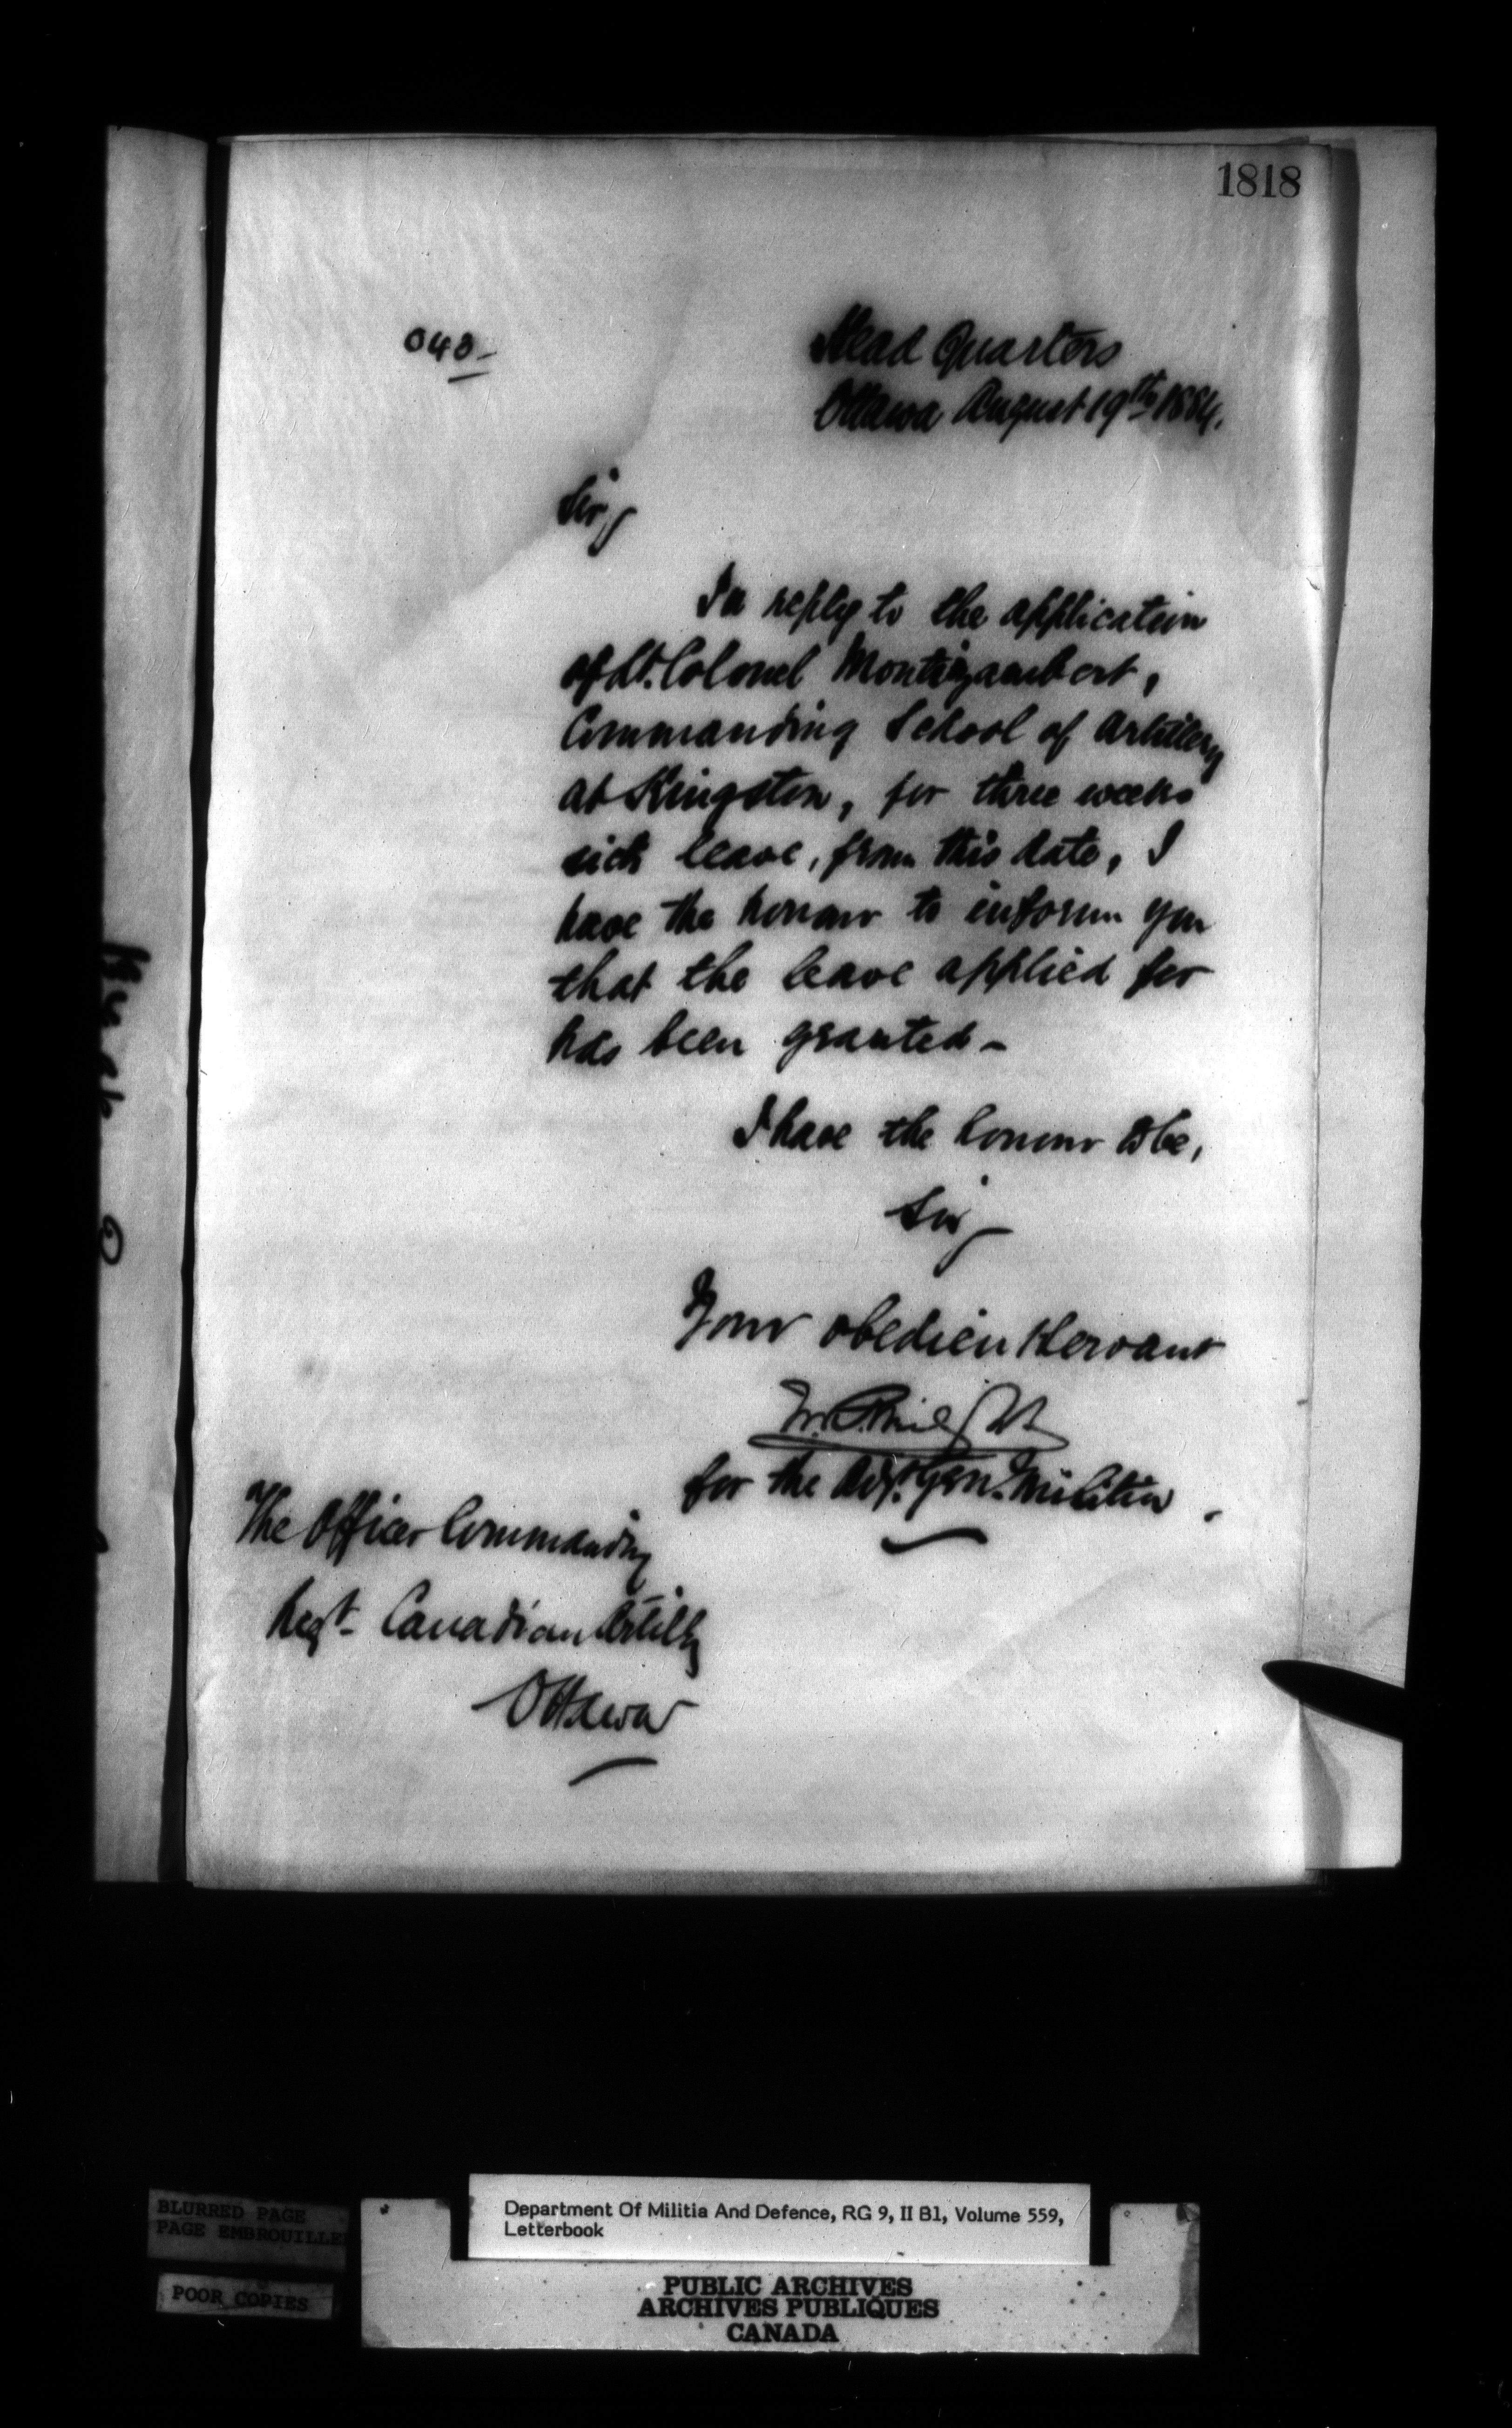 1818
040-
Head Quarters
Ottawa August 19th 1884.
Sir,
In reply to the application
of Lt. Colonel Montizambert,
Commanding School of Artillery
at Kingston, for three weeks
sick leave, from this date, I
have the honour to inform you
that the leave applied for
has been granted-
I have the honour to be,
Sir,
Your obedient Servant
for the Adjt. Gen. Militia.
The Officer Commanding
Regt- Canadian Artilly
Ottawa
BLURRED PAGE
PAGE EMBROUILLEE
POOR COPIES
Department Of Militia And Defence, RG 9, II B1, Volume 559,
Letterbook
PUBLIC ARCHIVES
ARCHIVES PUBLIQUES
CANADA